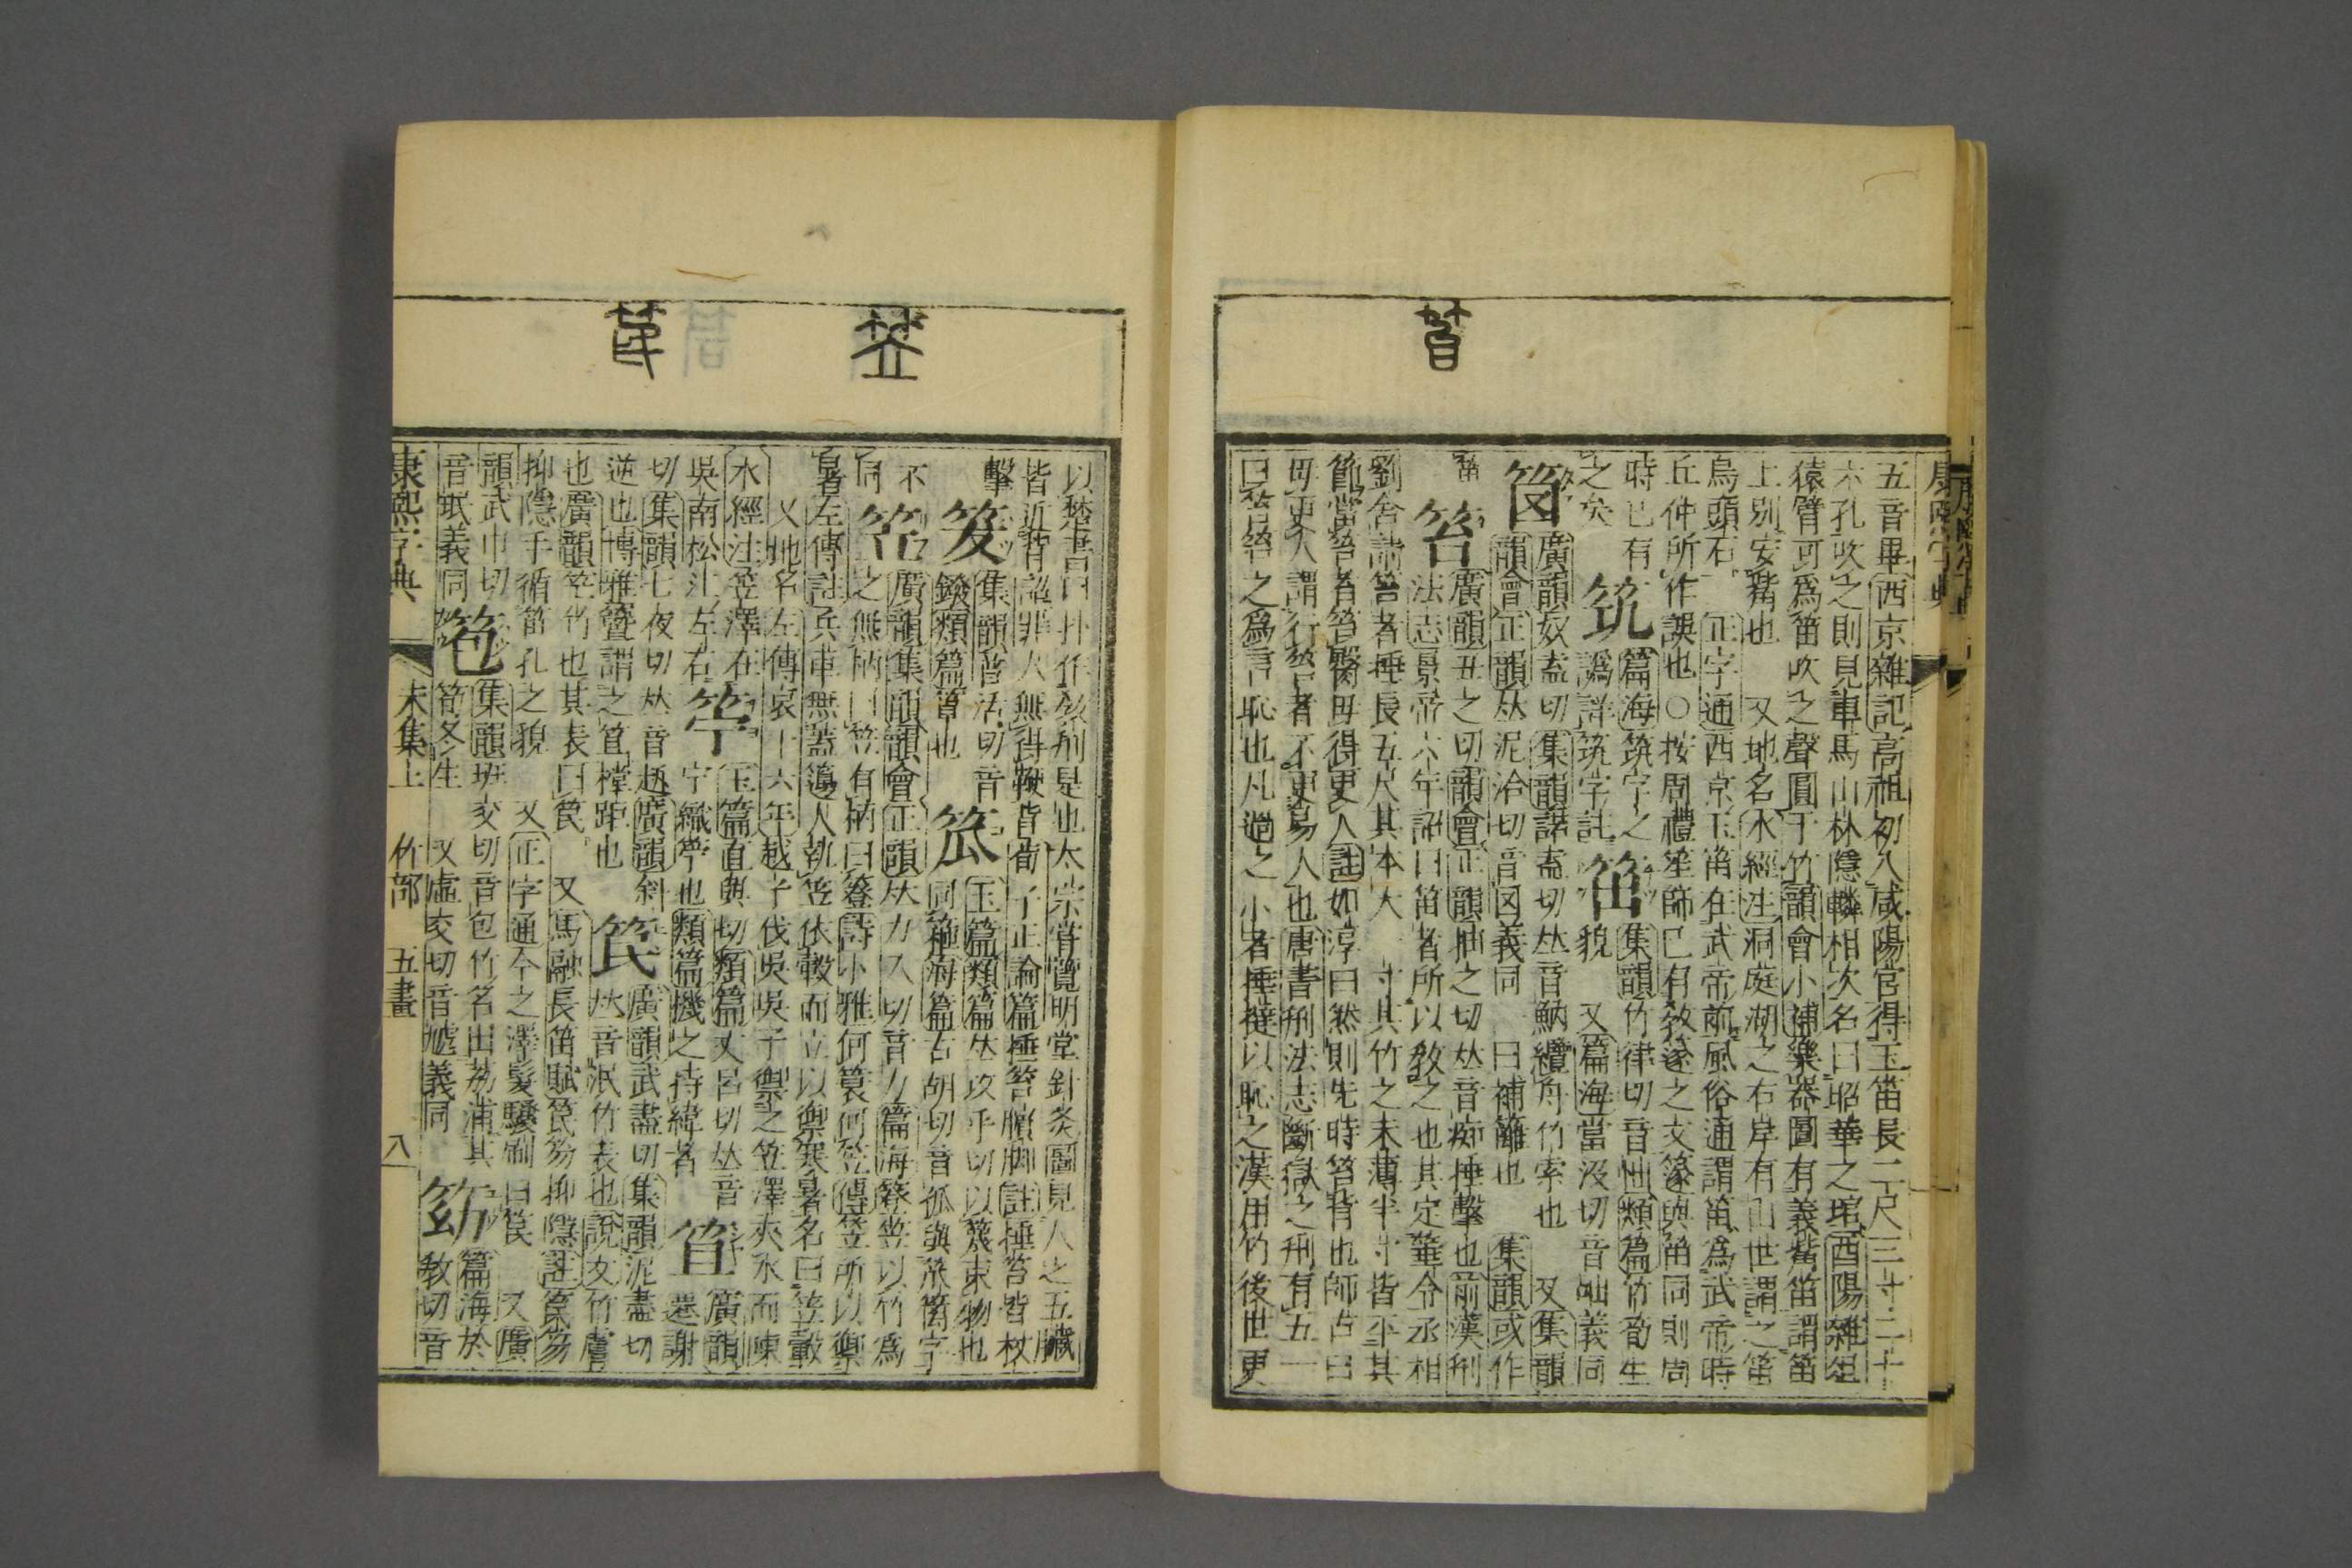 五音畢西京雜記高祖初入咸陽宮得玉笛長二尺三寸二十
六孔吹之則見車馬山林隱轔相次名曰昭華之琯酉陽雜俎
猿臂可為笛吹之聲圓于竹韻會小補樂器圖有義觜笛謂笛
上別安觜也 又地名水經注洞庭湖之右岸有山世謂之笛
烏頭石 正字通西京玉笛在武帝前風俗通謂笛為武帝時
丘仲所作誤也○按周禮笙師已有敎篴之文篴與笛同則周
時已有
之矣 筑 篇海筑字之譌詳筑字註 笜 集韻竹律切音怞類篇竹筍生貌 又篇海當沒切音咄義同
笝 廣韻奴盍切集韻諾盍切𠀤音魶纜舟竹索也 又集韻
韻會正韻𠀤泥洽切音図義同 曰補籬也 集韻或作
笞 廣韻丑之切韻會正韻抽之切𠀤音痴捶擊也前漢刑
法志景帝六年詔曰笞者所以敎之也其定箠令丞相
劉舍請笞者捶長五尺其本大一寸其竹之末薄半寸皆平其
節當笞者笞臋毋得更人註如淳曰然則先時笞背也師古曰
毋更人謂行笞者不更易人也唐書刑法志斷獄之刑有五一
曰笞笞之為言恥也凡過之小者捶撻以恥之漢用竹後世更
以楚書曰扑作敎刑是也太宗嘗覽明堂針灸圖見人之五臟
皆近背詔罪人無得鞭背荀子正論篇捶笞臏脚註捶笞皆杖
擊 笈 集韻皆活切音鏺類篇簟也 笟 玉篇類篇𠀤攻乎切以篾束物也
同箍海篇古胡切音孤與箛字
不
同 笠 廣韻集韻韻會正韻𠀤力入切音力篇海簦笠以竹為
之無柄曰笠有柄曰簦詩小雅何蓑何笠傳笠所以禦
暑左傳註兵車無蓋邊人執笠依轂而立以禦寒暑名曰笠轂
又地名左傳哀十六年越子伐吳吳子禦之笠澤夾水而陳
水經注笠澤在
吳南松江左右 竚 玉篇直與切類篇丈呂切𠀤音
宁織竚也類篇機之持緯者 笡 廣韻遷謝
切集韻七夜切𠀤音趄廣韻斜
逆也博雅簦謂之笡樘距也 笢 廣韻武盡切集韻泥盡切
𠀤音泯竹表也說文竹膚
也廣韻笢竹也其表曰笢 又馬融長笛賦笢笏抑隱註笢笏
抑隱手循笛孔之貌 又正字通今之澤髮鬉刷曰笢 又廣
韻武巾切
音珉義同 笣 集韻班交切音包竹名出荔浦其
筍冬生 又虛交切音虓義同 䇤 篇海於
敎切音
康熙字典 未集上 竹部 五畫 八